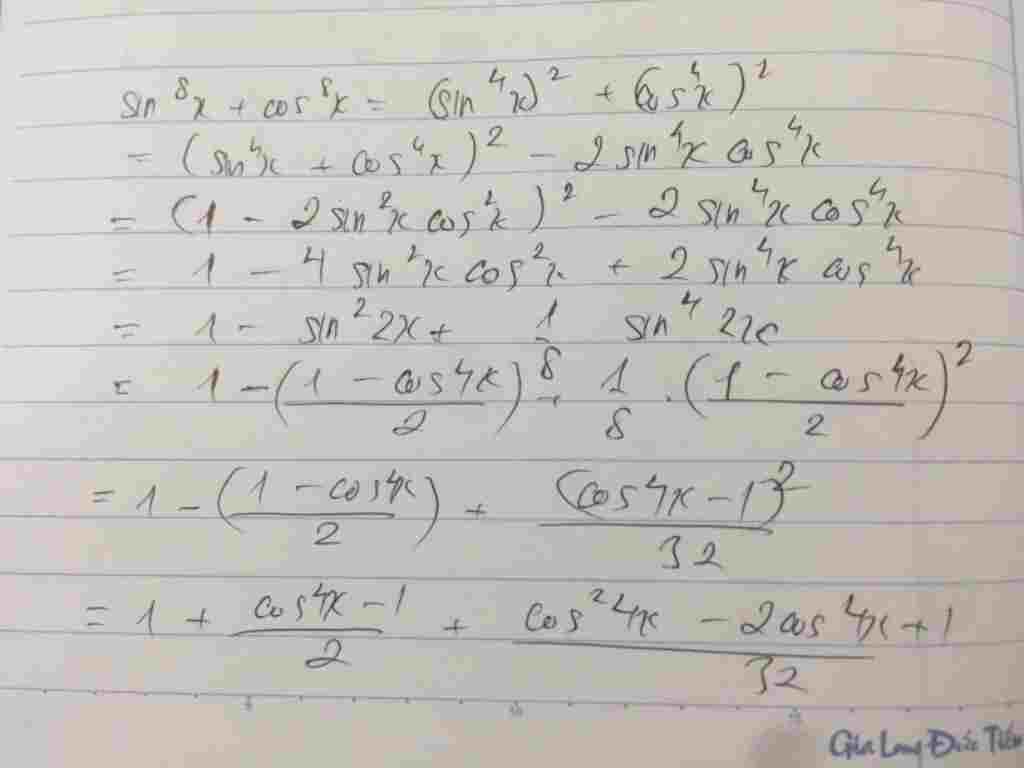 sin⁸x + cos⁸x = (sin⁴x)² + (cos⁴x)²
= (sin⁴x + cos⁴x)² - 2 sin⁴x cos⁴x
= (1 - 2 sin²x cos²x)² - 2 sin⁴x cos⁴x
= 1 - 4 sin²x cos²x + 2 sin⁴x cos⁴x
= 1 - sin²2x + 1/8 sin⁴2x
= 1 - ((1 - cos4x)/2) + 1/8 . ((1 - cos4x)/2)²
= 1 - ((1 - cos4x)/2) + (cos4x - 1)²/32
= 1 + (cos4x - 1)/2 + (cos²4x - 2cos4x + 1)/32
5 10 15
Gia Long Đức Tiến